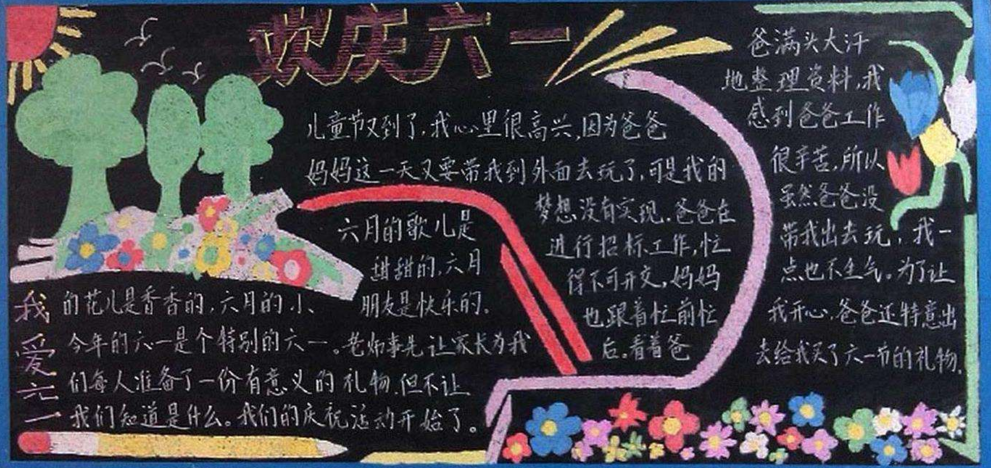 欢庆六一
儿童节又到了,我心里很高兴,因为爸爸
妈妈这一天又要带我到外面去玩了,可是我的
梦想没有实现。爸爸在
进行招标工作,忙
得不可开交,妈妈
也跟着忙前忙
后。看着爸
爸满头大汗
地整理资料,我
感到爸爸工作
很辛苦,所以
虽然爸爸没
带我出去玩,我一
点也不生气。为了让
我开心,爸爸还特意出
去给我买了六一节的礼物。
我爱六一
六月的歌儿是
甜甜的,六月
的花儿是香香的,六月的小
朋友是快乐的。
今年的六一是个特别的六一。老师事先让家长为我
们每人准备了一份有意义的礼物,但不让
我们知道是什么。我们的庆祝活动开始了。